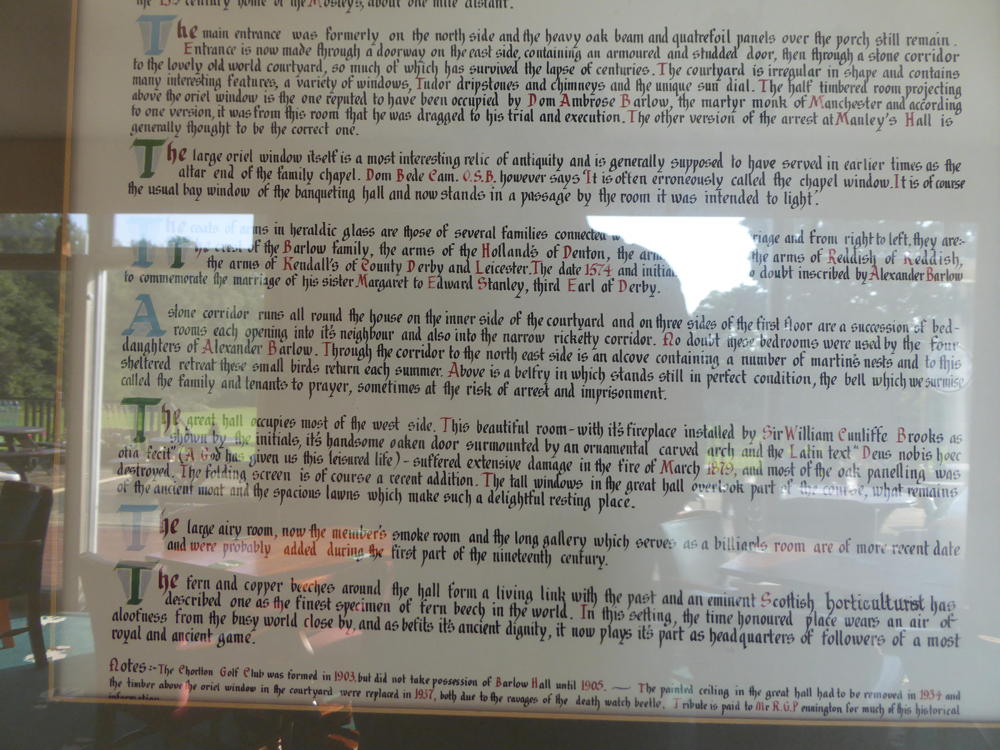 the 15th century home of the Mosleys, about one mile distant.
The main entrance was formerly on the north side and the heavy oak beam and quatrefoil panels over the porch still remain.
Entrance is now made through a doorway on the east side, containing an armoured and studded door, then through a stone corridor
to the lovely old world courtyard, so much of which has survived the lapse of centuries. The courtyard is irregular in shape and contains
many interesting features, a variety of windows, Tudor dripstones and chimneys and the unique sun dial. The half timbered room projecting
above the oriel window is the one reputed to have been occupied by Dom Ambrose Barlow, the martyr monk of Manchester and according
to one version, it was from this room that he was dragged to his trial and execution. The other version of the arrest at Manley's Hall is
generally thought to be the correct one.
The large oriel window itself is a most interesting relic of antiquity and is generally supposed to have served in earlier times as the
altar end of the family chapel. Dom Bede Cam. O.S.B. however says 'It is often erroneously called the chapel window. It is of course
the usual bay window of the banqueting hall and now stands in a passage by the room it was intended to light'.
The coats of arms in heraldic glass are those of several families connected riage and from right to left, they are:-
The crest of the Barlow family, the arms of the Holland's of Denton, the arm the arms of Reddish of Reddish,
the arms of Kendall's of County Derby and Leicester. The date 1574 and initia doubt inscribed by Alexander Barlow
to commemorate the marriage of his sister Margaret to Edward Stanley, third Earl of Derby.
A stone corridor runs all round the house on the inner side of the courtyard and on three sides of the first floor are a succession of bed-
rooms each opening into it's neighbour and also into the narrow ricketty corridor. No doubt these bedrooms were used by the four
daughters of Alexander Barlow. Through the corridor to the north east side is an alcove containing a number of martin's nests and to this
sheltered retreat these small birds return each summer. Above is a belfry in which stands still in perfect condition, the bell which we surmise
called the family and tenants to prayer, sometimes at the risk of arrest and imprisonment.
The great hall occupies most of the west side. This beautiful room - with it's fireplace installed by Sir William Cunliffe Brooks as
shown by the initials, it's handsome oaken door surmounted by an ornamental carved arch and the Latin text "Deus nobis hoec
otia fecit" (A God has given us this leisured life) - suffered extensive damage in the fire of March 1879, and most of the oak panelling was
destroyed. The folding screen is of course a recent addition. The tall windows in the great hall overlook part of the course, what remains
of the ancient moat and the spacious lawns which make such a delightful resting place.
The large airy room, now the member's smoke room and the long gallery which serves as a billiards room are of more recent date
and were probably added during the first part of the nineteenth century.
The fern and copper beeches around the hall form a living link with the past and an eminent Scottish horticulturist has
described one as the finest specimen of fern beech in the world. In this setting, the time honoured place wears an air of
aloofness from the busy world close by, and as befits it's ancient dignity, it now plays it's part as headquarters of followers of a most
royal and ancient game.
Notes:- The Chorlton Golf Club was formed in 1903, but did not take possession of Barlow Hall until 1905. — The painted ceiling in the great hall had to be removed in 1934 and
the timber above the oriel window in the courtyard were replaced in 1937, both due to the ravages of the death watch beetle. Tribute is paid to Mr R.G.Pennington for much of this historical
information